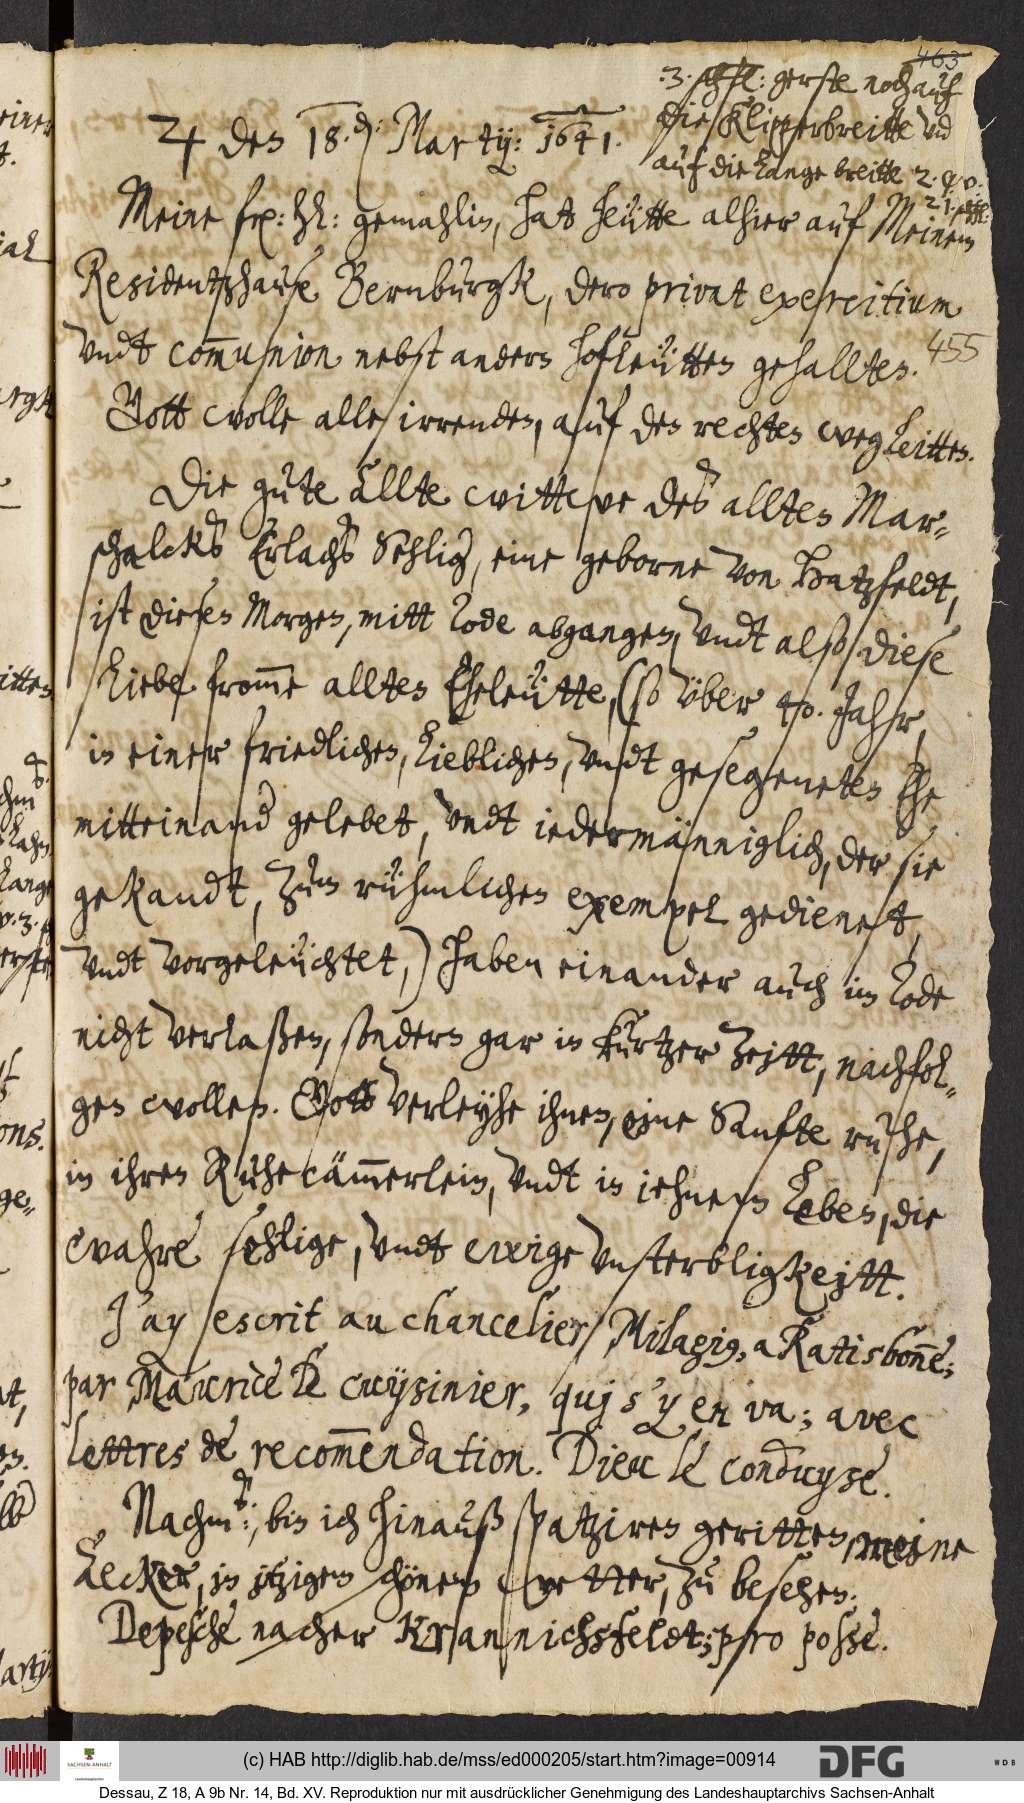 463
.3. schfl: gerste noch auf
die Klipperbreitte vnd
auf die Lange breitte 2. w. v.
21. schfl:
♃ den 18. d: Martij: 1641.
Meine fr: hl: gemahlin, hat heütte alhier auf Meinem
Residentzhause Bernburgk, dero privat exercitium
vndt com̅union nebst andern hofleütten gehallten.
455
Gott wolle alle irrenden, auf den rechten weg leitten.
Die gute allte wittwe des allten Mar-
schalcks Erlachs Sehlig, eine geborne von Hatzfeldt,
ist diesen Morgen, mitt Tode abgangen, vndt also diese
Liebe from̅e allten Eheleütte, (so vber 40. Jahr,
in einer friedlichen, Lieblichen, vndt gesegeneten Ehe
mitteinand gelebet, vndt iedermänniglich, der sie
gekandt, zum rühmlichen exempel gedienet,
vndt vorgeleüchtet,) haben einander auch im Tode
nicht verlaßen, sondern gar in kurtzer Zejtt, nachfol-
gen wollen. Gott verleyhe ihnen, eine Sanfte ruhe,
in ihren Ruhecäm̅erlein, vndt in jehnem Leben, die
wahre sehlige, vndt ewige vnsterbligkejtt.
J'ay escrit au chancelier Milagius, a Ratisbon̅e,
par Maurice le cuysinier, quj s'y en va; avec
lettres de recom̅endation. Dieu le conduyse.
Nachm: bin ich hinauß spatziren geritten, meine
Äecker, in itzigem schönem wetter, zu besehen.
Depesche nacher Krannichfeldt; pro posse.
(c) HAB http://diglib.hab.de/mss/ed000205/start.htm?image=00914
SACHSEN-ANHALT
DFG
WDB
Dessau, Z 18, A 9b Nr. 14, Bd. XV. Reproduktion nur mit ausdrücklicher Genehmigung des Landeshauptarchivs Sachsen-Anhalt